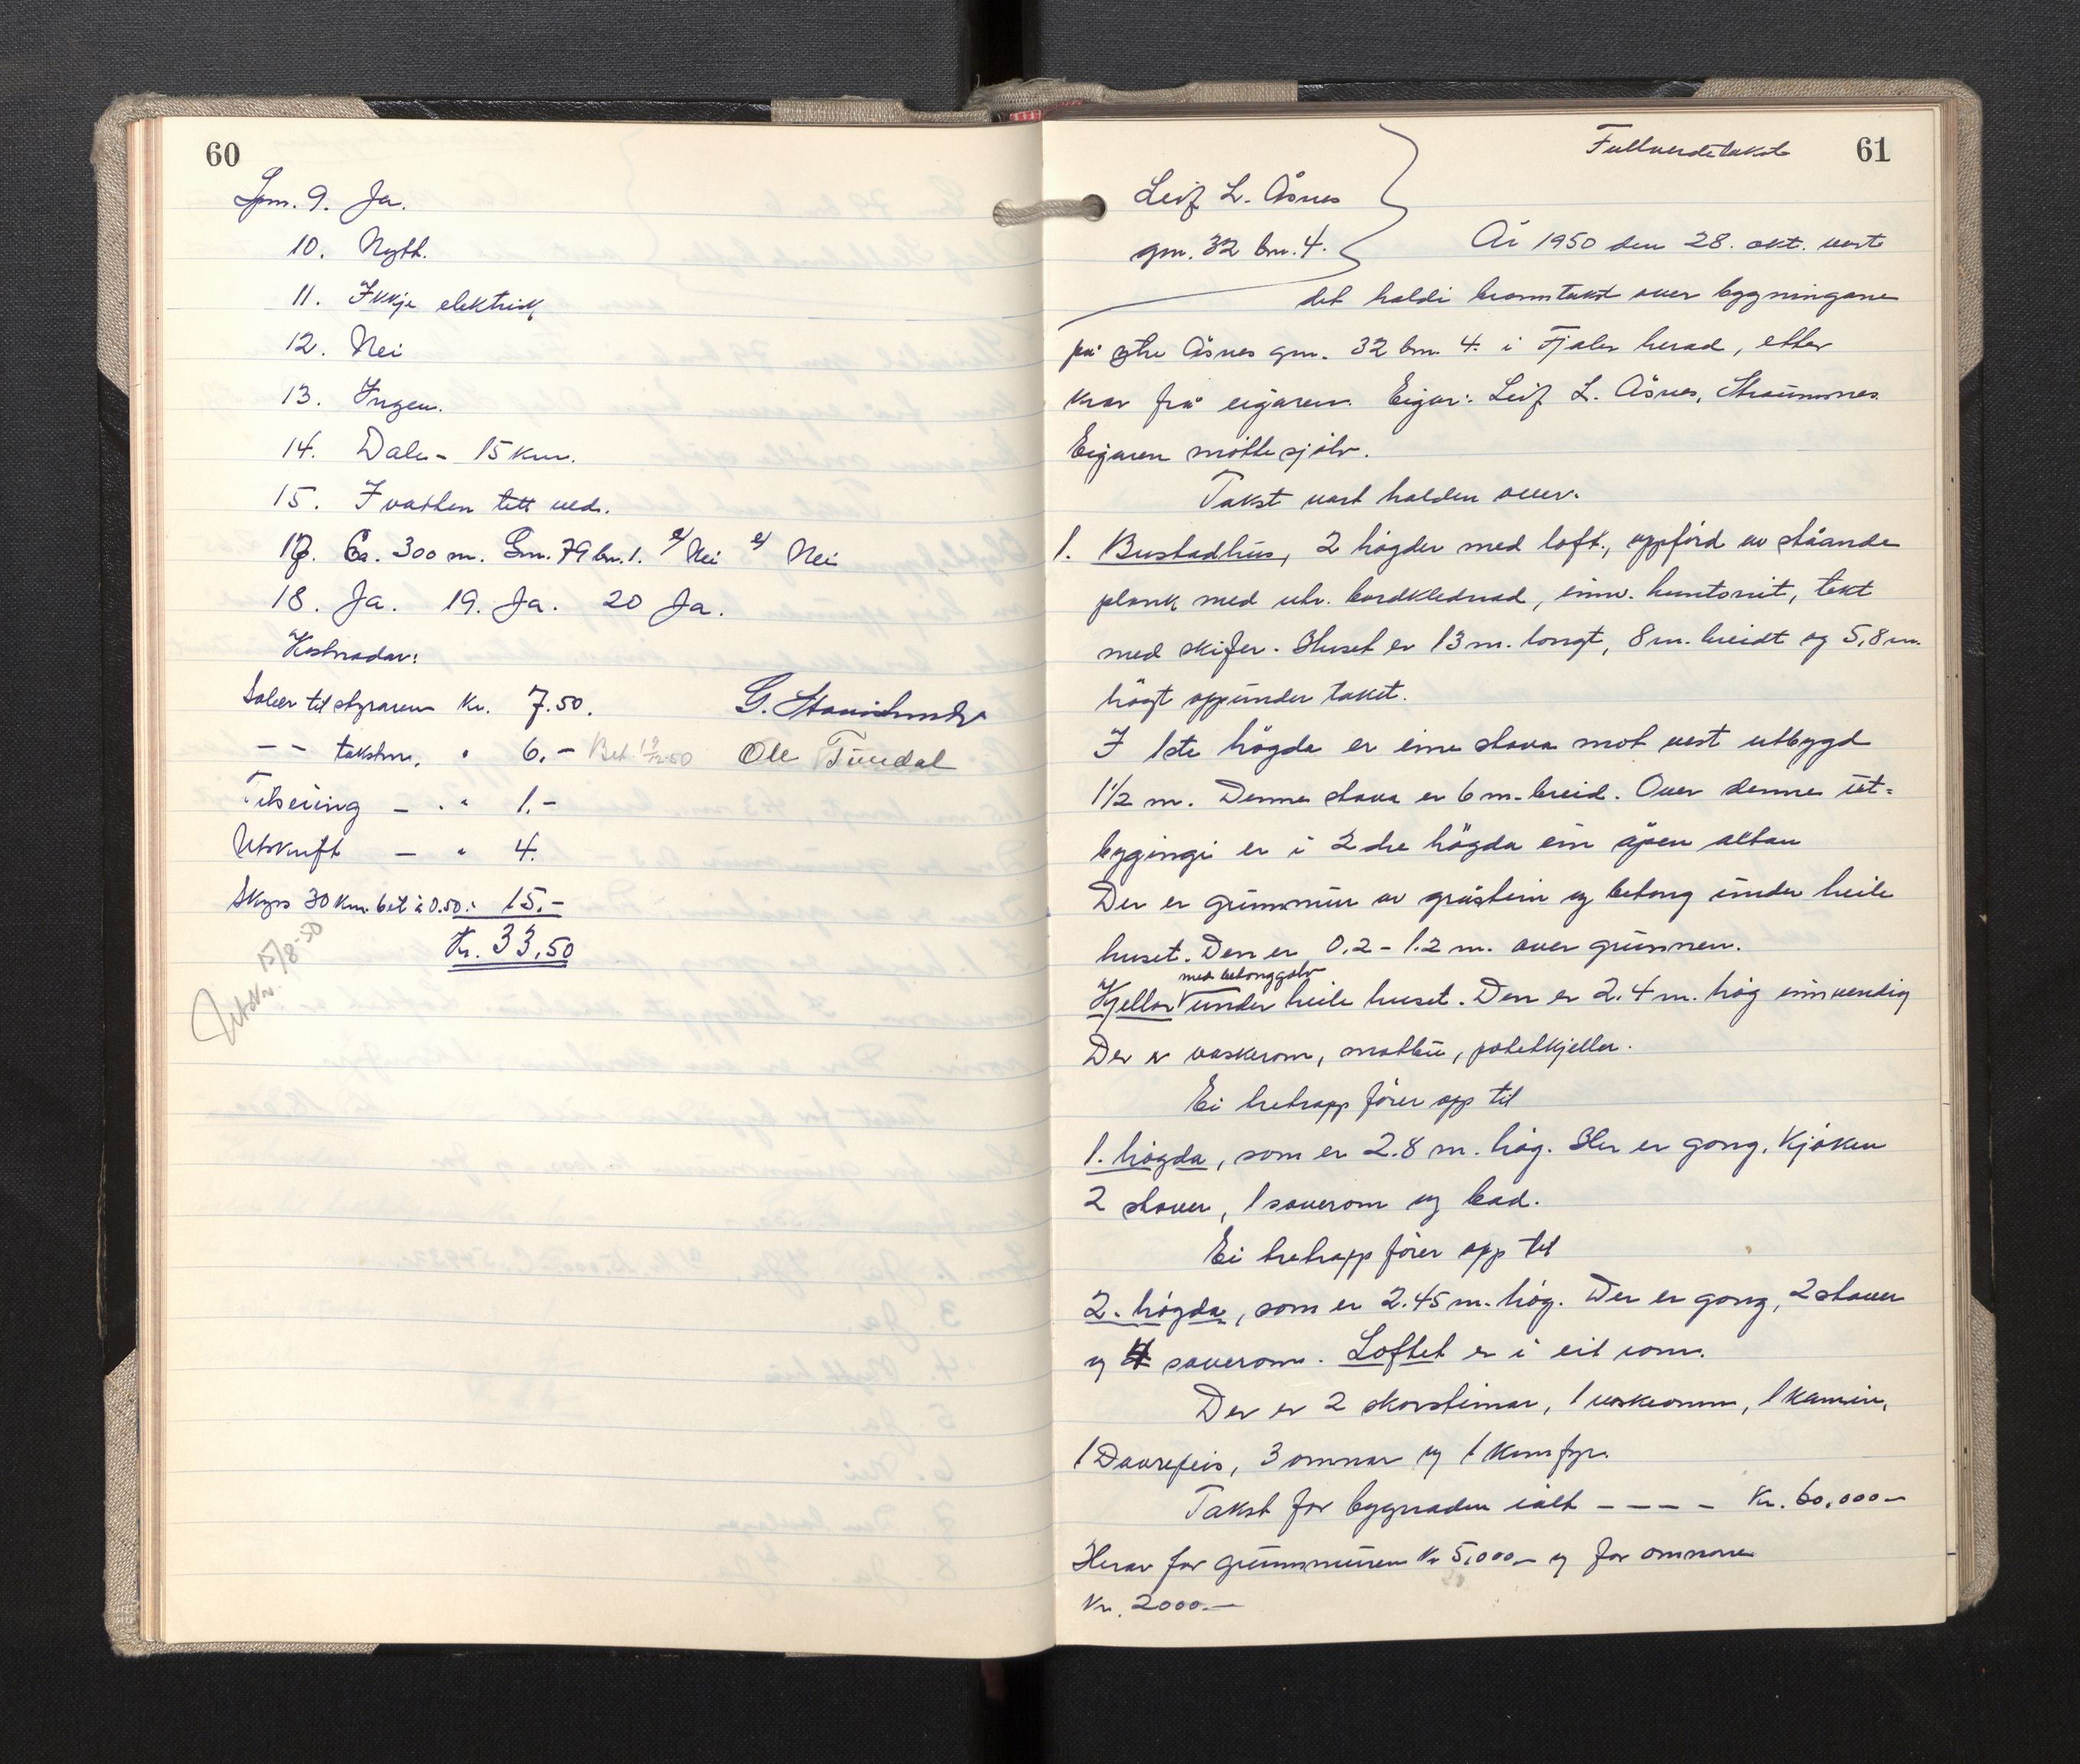 60
Spm. 9. Ja.
10. Nytt.
11. Ikkje elektrisk
12. Nei
13. Ingen.
14. Dale - 15 km.
15. I vatten tett ved.
17. Ca. 300 m. Gnr. 79 bnr. 1. Nei Nei
18. Ja. 19. Ja. 20 Ja.
Kostnadar:
Salær til styraren Kr. 7.50. G.
— — takstm. " 6.- Bet. Ole Tundal
Tilseiing — " 1.-
Utskrift — " 4.
Skyss 30 km. bil à 0.50: 15.-
Kr. 33,50
Utskr. 15/8-50
61
Fullverdetakst
Leif L. Åsnes
gnr. 32 bnr. 4.
År 1950 den 28. okt. vart
det haldi branntakst over bygningane
på Åsnes gnr. 32 bnr. 4. i Fjaler herad, etter
krav frå eigaren. Eigar: Leif L. Åsnes, Straumsnes.
Eigaren møtte sjølv.
Takst vart halden over.
1. Bustadhus, 2 högder med loft, uppförd av ståande
plank med utv. bordklednad, innv. huntonit, tekt
med skifer. Huset er 13 m. langt, 8 m. breidt og 5,8 m.
högt oppunder taket.
I 1ste högda er eine stova mot vest utbygd
1½ m. Denne stova er 6 m. breid. Over denne ut-
bygingi er i 2dre högda ein åpen altan
Der er grunnmur av gråstein og betong under heile
huset. Den er 0.2 - 1.2 m. over grunnen.
med betonggolv
Kjellar under heile huset. Den er 2.4 m. hög innvendig
Der er vaskerom, matbu, potetkjeller.
Ei tretrapp förer opp til
1. högda, som er 2.8 m. hög. Her er gong, kjöken
2 stover, 1 soverom og bad.
Ei tretrapp förer opp til
2. högda, som er 2.45 m. hög. Der er gong, 2 stover
og 4 soverom. Loftet er i eit rom.
Der er 2 skorsteinar, 1 vaskeomn, 1 kamin,
1 Dovrepeis, 3 omnar og 1 komfyr.
Takst for bygnaden ialt - - - - Kr. 60.000-
Herav for grunnmuren kr 5,000- og for omnane
Kr. 2000.-